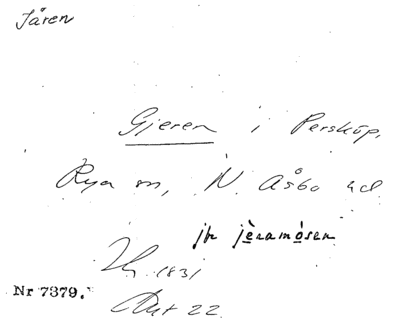 Jären
Gjeren i Perstorp,
Rya sn, N. Åsbo hd
jfr jèramòsen
1831
Nr 7379.
Akt 22